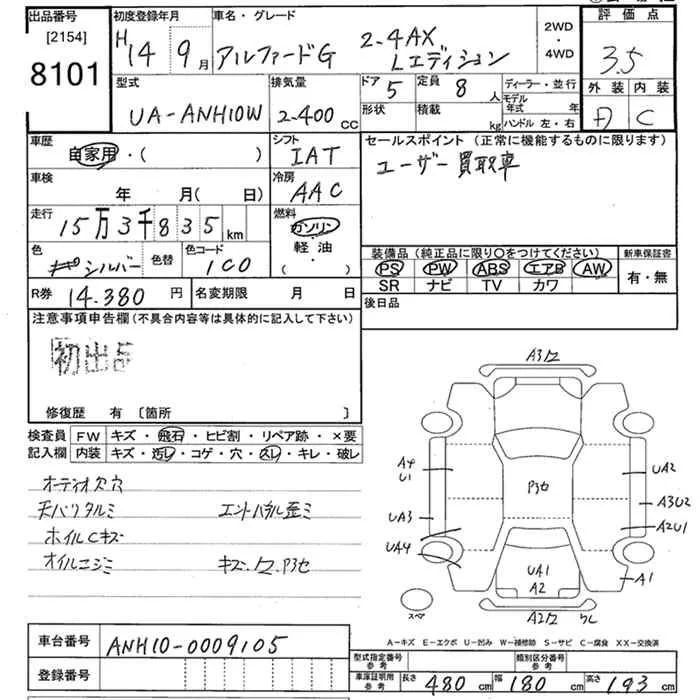 出品番号 初度登録年月 車名・グレード 2WD・4WD 評価点
[2154]
8101
H14 9月
アルファードG 2-4AX Lエディション
3.5
型式 排気量 ドア 定員 ディーラー・並行 外装 内装
UA-ANH10W 2-400cc 5 8人
モデル年式 年
形状 積載 kg ハンドル 左・右
A C
車歴 シフト セールスポイント (正常に機能するものに限ります)
自家用・( )
IAT
ユーザー買取車
車検 冷房
年 月(日) AAC
走行 燃料
15万3千835km
ガソリン
軽油
・( )
色 色替 色コード
シルバー 1C0
装備品 (純正品に限り○をつけてください) 新車保証書
PS PW ABS エアB AW 有・無
SR ナビ TV カワ
R券 14.380円 名変期限 月 日
後日品
注意事項申告欄 (不具合内容等は具体的に記入して下さい)
初出品
修復歴 有 〔箇所 〕
検査員 FW キズ・飛石・ヒビ割・リペア跡・×要
記入欄 内装 キズ・汚レ・コゲ・穴・スレ・キレ・破レ
オーディオ欠穴
天バリタルミ
ホイルCキズ
オイルニジミ
A3
P3セ
A4
U1
UA3
UA4
UA2
A3U2
A2U1
A1
UA1
A2
スペア
A-キズ E-エクボ U-凹み W-補修跡 S-サビ C-腐食 XX-交換済
車台番号 ANH10-0009105
登録番号
型式指定番号 参考 類別区分番号 参考
車庫証明用 参考 長さ 480cm 幅 180cm 高さ 193cm